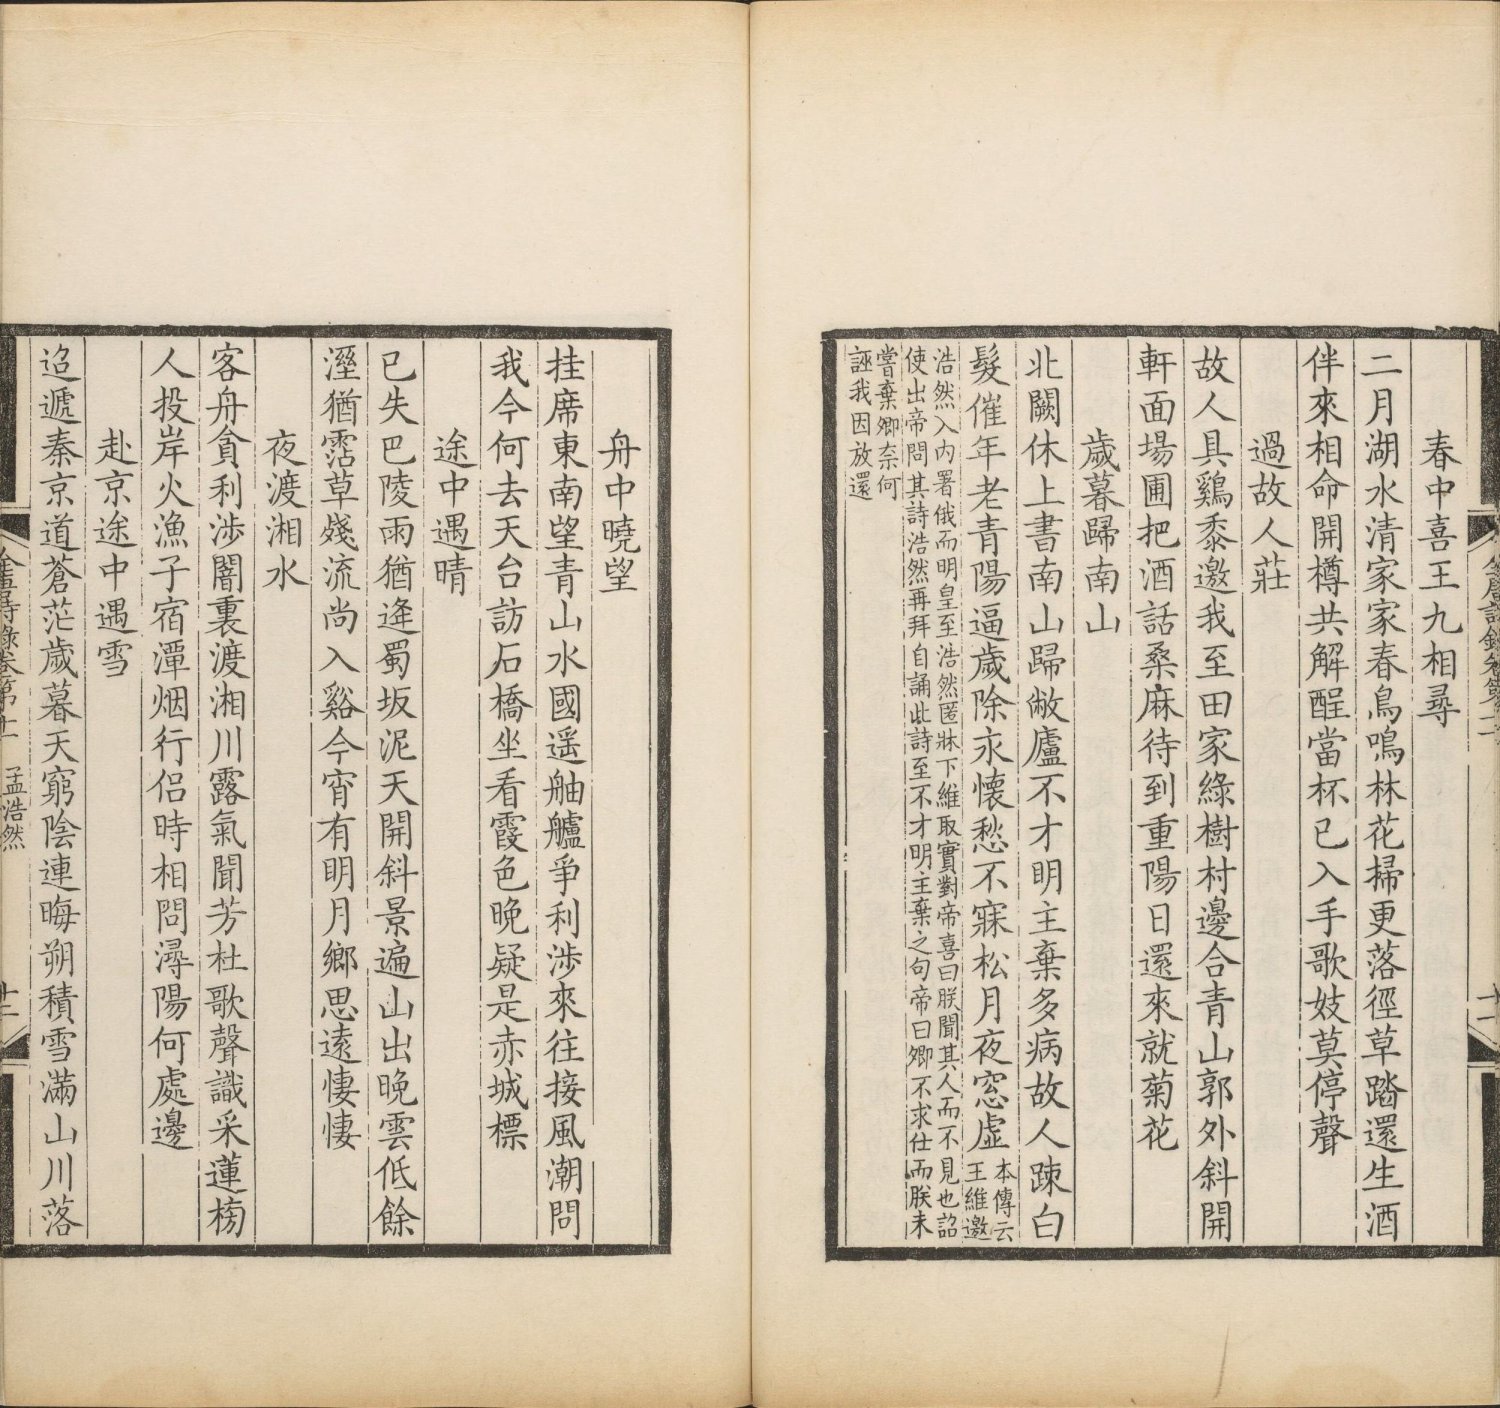 春中喜王九相尋
二月湖水清家家春鳥鳴林花掃更落徑草踏還生酒
伴來相命開樽共解酲當杯已入手歌妓莫停聲
過故人莊
故人具鷄黍邀我至田家綠樹村邊合青山郭外斜開
軒面場圃把酒話桑麻待到重陽日還來就菊花
歲暮歸南山
北闕休上書南山歸敝廬不才明主棄多病故人踈白
髮催年老青陽逼歲除永懷愁不寐松月夜窓虛
本傳云
王維邀
浩然入内署俄而明皇至浩然匿牀下維取實對帝喜曰朕聞其人而不見也詔
使出帝問其詩浩然再拜自誦此詩至不才明主棄之句帝曰卿不求仕而朕未
嘗棄卿奈何
誣我因放還
舟中曉望
挂席東南望青山水國遥舳艫爭利涉來往接風潮問
我今何去天台訪石橋坐看霞色晚疑是赤城標
途中遇晴
已失巴陵雨猶逢蜀坂泥天開斜景遍山出晚雲低餘
溼猶霑草殘流尚入谿今宵有明月鄉思遠悽悽
夜渡湘水
客舟貪利涉闇裏渡湘川露氣聞芳杜歌聲識采蓮榜
人投岸火漁子宿潭烟行侣時相問潯陽何處邊
赴京途中遇雪
迢遞秦京道蒼茫歲暮天窮陰連晦朔積雪滿山川落
全唐詩錄卷第十一 孟浩然